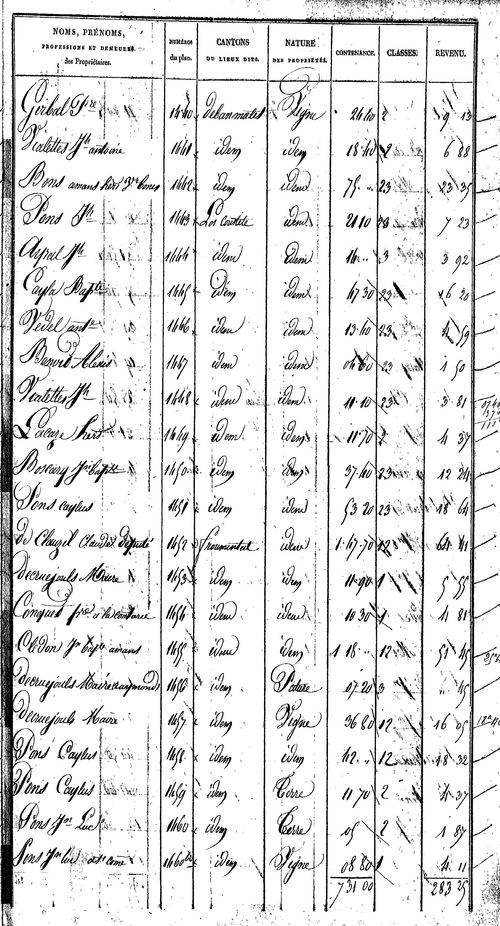 NOMS, PRÉNOMS, PROFESSIONS ET DEMEURES des Propriétaires. NUMÉROS du plan. CANTONS OU LIEUX DITS. NATURE DES PROPRIÉTÉS. CONTENANCE. CLASSES. REVENU.
Girbal 1440 debammates Vigne 24 40 2 9 13
Vialettes Jh antoine 1441 idem idem 18 40 2 6 88
Bons amans 1442 idem idem 75 .. 23 23 35
Pons Jh 1443 idem 21 10 23 7 23
Jh 1444 idem idem 16 .. 3 3 92
Cayla Bapte 1445 idem idem 47 30 23 16 20
Vedel ante 1446 idem idem 13 40 23 4 59
Benoit Alexis 1447 idem idem 04 60 23 1 50
Vialettes Jh 1448 idem idem 11 10 23 3 81
Lacaze 1449 idem idem 11 70 2 4 37
Boscary 1450 idem idem 37 40 23 12 24
Pons caylus 1451 idem idem 53 20 23 18 64
de Clauzel Claude député 1452 fromental idem 1 67 70 12 64 41
decruejouls Maire 1453 idem idem 11 90 1 5 55
Conquet 1454 idem idem 10 30 1 4 81
1455 idem idem 1 18 .. 12 51 45
decruejouls Maire raymond 1456 idem Pature 07 20 3 .. 45
decruejouls Maire 1457 idem Vigne 36 80 12 16 05
Pons Caylus 1458 idem idem 42 .. 12 18 32
Pons Caylus 1459 idem Terre 11 70 2 4 37
Pons Jn Luc 1460 idem Terre 05 2 1 87
Pons Jn luc 1460 bis idem Vigne 08 80 1 4 11
7 31 00 283 25